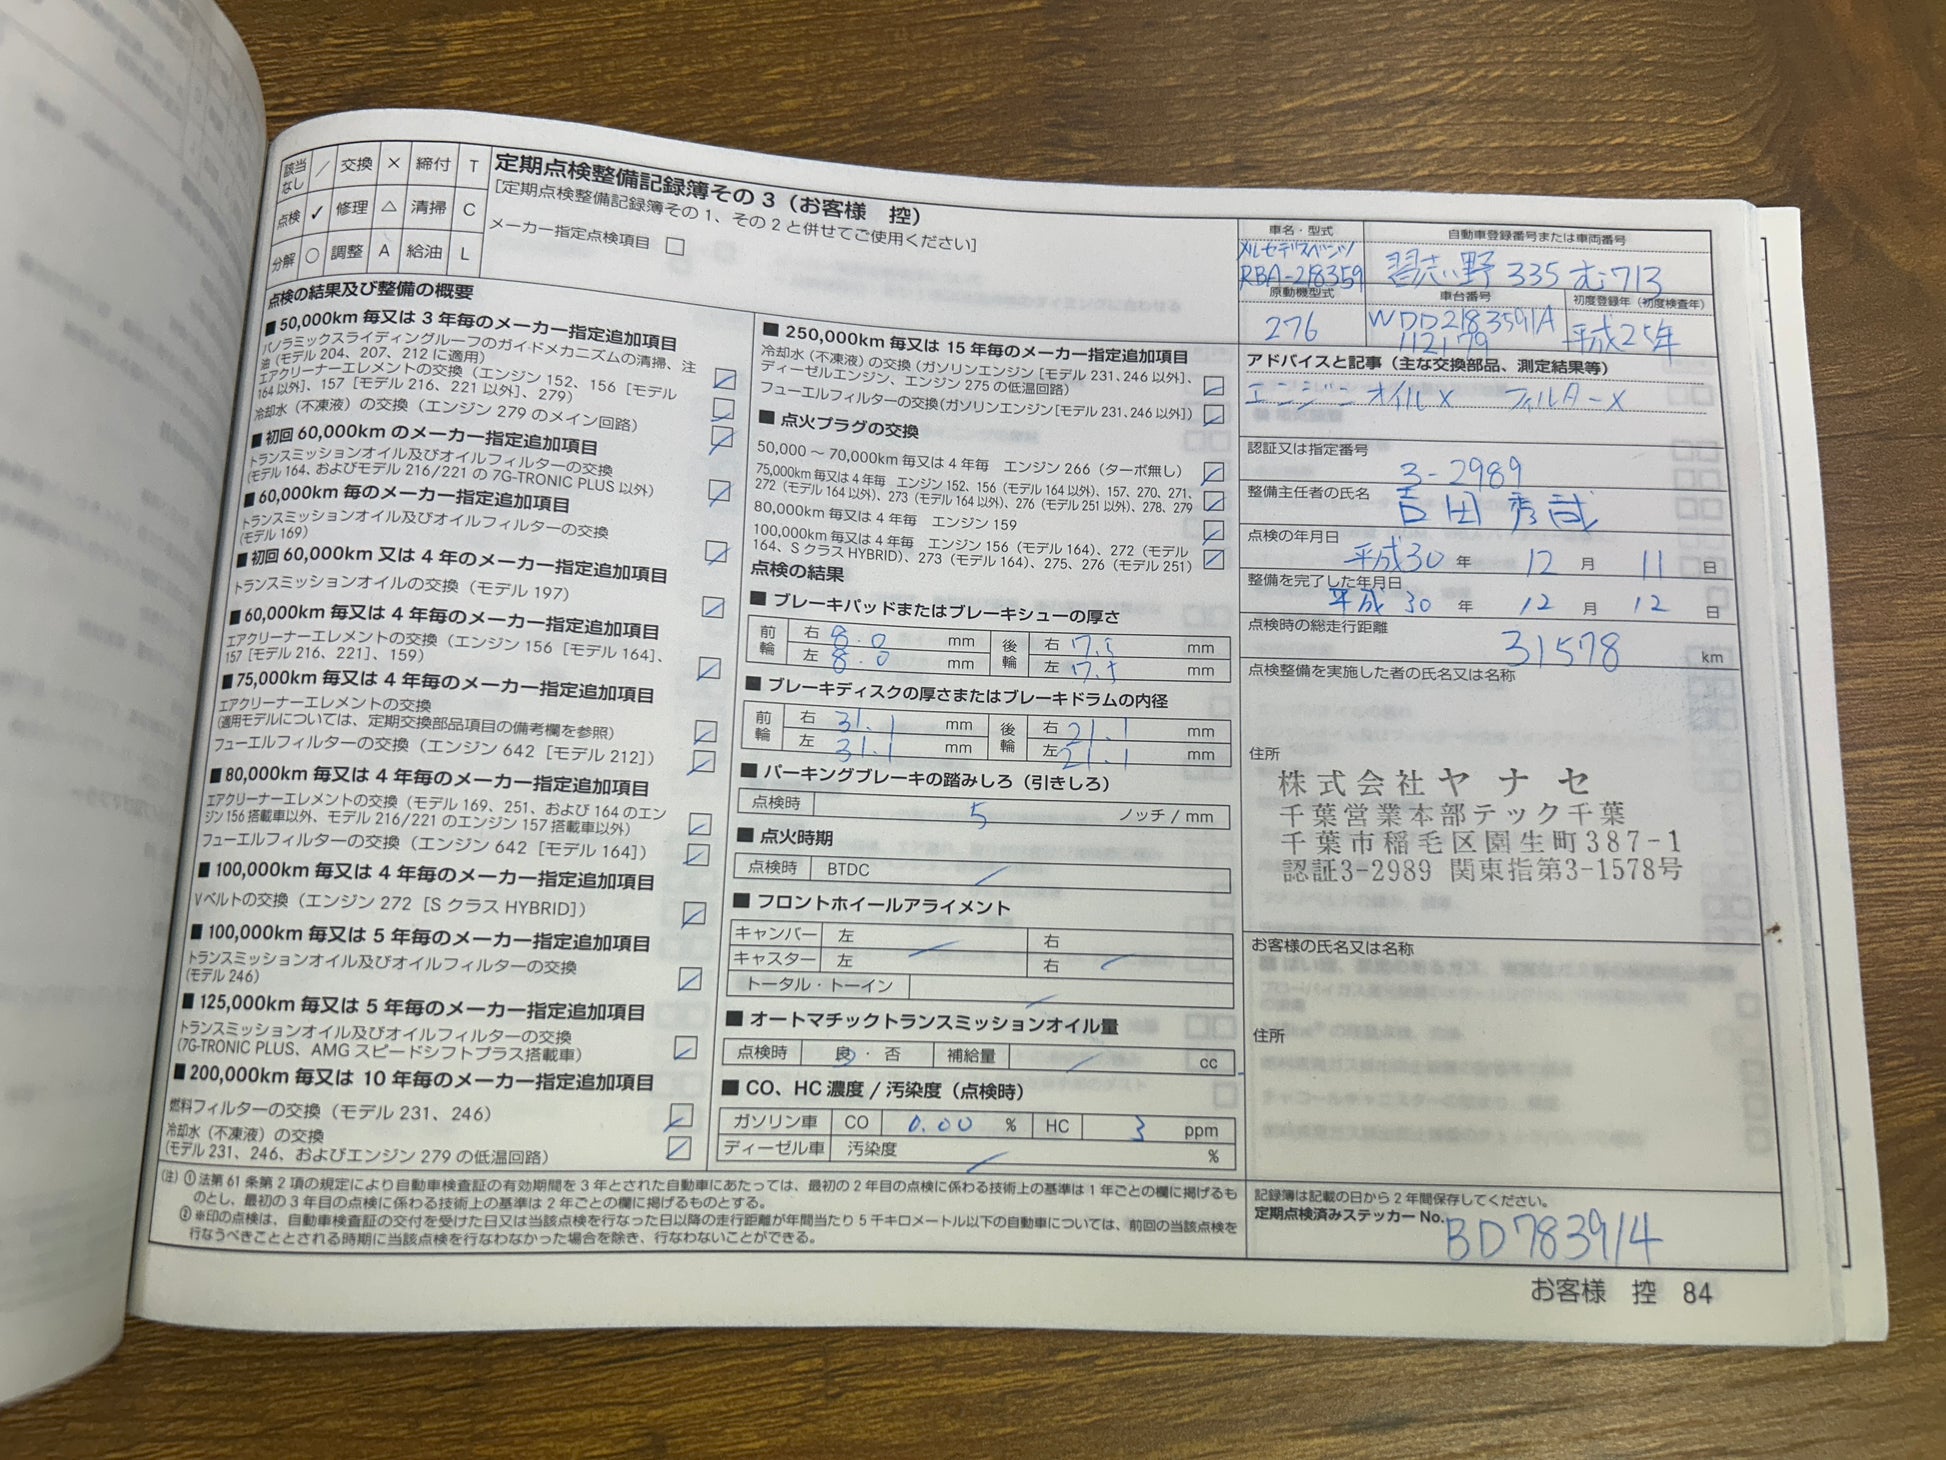 該当なし ／ 交換 × 締付 T
点検 ✓ 修理 △ 清掃 C
分解 ○ 調整 A 給油 L
定期点検整備記録簿その3（お客様　控）
［定期点検整備記録簿その1、その2と併せてご使用ください］
メーカー指定点検項目 □
点検の結果及び整備の概要
■ 50,000km 毎又は 3 年毎のメーカー指定追加項目
パノラミックスライディングルーフのガイドメカニズムの清掃、注
油（モデル 204、207、212 に適用）
エアクリーナーエレメントの交換（エンジン 152、156［モデル
164 以外］、157［モデル 216、221 以外］、279）
冷却水（不凍液）の交換（エンジン 279 のメイン回路）
■ 初回 60,000km のメーカー指定追加項目
トランスミッションオイル及びオイルフィルターの交換
（モデル 164、およびモデル 216/221 の 7G-TRONIC PLUS 以外）
■ 60,000km 毎のメーカー指定追加項目
トランスミッションオイル及びオイルフィルターの交換
（モデル 169）
■ 初回 60,000km 又は 4 年のメーカー指定追加項目
トランスミッションオイルの交換（モデル 197）
■ 60,000km 毎又は 4 年毎のメーカー指定追加項目
エアクリーナーエレメントの交換（エンジン 156［モデル 164］、
157［モデル 216、221］、159）
■ 75,000km 毎又は 4 年毎のメーカー指定追加項目
エアクリーナーエレメントの交換
（適用モデルについては、定期交換部品項目の備考欄を参照）
フューエルフィルターの交換（エンジン 642［モデル 212］）
■ 80,000km 毎又は 4 年毎のメーカー指定追加項目
エアクリーナーエレメントの交換（モデル 169、251、および 164 のエン
ジン 156 搭載車以外、モデル 216/221 のエンジン 157 搭載車以外）
フューエルフィルターの交換（エンジン 642［モデル 164］）
■ 100,000km 毎又は 4 年毎のメーカー指定追加項目
Vベルトの交換（エンジン 272［S クラス HYBRID］）
■ 100,000km 毎又は 5 年毎のメーカー指定追加項目
トランスミッションオイル及びオイルフィルターの交換
（モデル 246）
■ 125,000km 毎又は 5 年毎のメーカー指定追加項目
トランスミッションオイル及びオイルフィルターの交換
（7G-TRONIC PLUS、AMG スピードシフトプラス搭載車）
■ 200,000km 毎又は 10 年毎のメーカー指定追加項目
燃料フィルターの交換（モデル 231、246）
冷却水（不凍液）の交換
（モデル 231、246、およびエンジン 279 の低温回路）
■ 250,000km 毎又は 15 年毎のメーカー指定追加項目
冷却水（不凍液）の交換（ガソリンエンジン［モデル 231、246 以外］、
ディーゼルエンジン、エンジン 275 の低温回路）
フューエルフィルターの交換（ガソリンエンジン［モデル 231、246 以外］）
■ 点火プラグの交換
50,000 〜 70,000km 毎又は 4 年毎　エンジン 266（ターボ無し）
75,000km 毎又は 4 年毎　エンジン 152、156（モデル 164 以外）、157、270、271、
272（モデル 164 以外）、273（モデル 164 以外）、276（モデル 251 以外）、278、279
80,000km 毎又は 4 年毎　エンジン 159
100,000km 毎又は 4 年毎　エンジン 156（モデル 164）、272（モデル
164、S クラス HYBRID）、273（モデル 164）、275、276（モデル 251）
点検の結果
■ ブレーキパッドまたはブレーキシューの厚さ
前輪 右 8.0 mm 後輪 右 mm
左 8.0 mm 左 mm
■ ブレーキディスクの厚さまたはブレーキドラムの内径
前輪 右 31.1 mm 後輪 右 21.1 mm
左 31.1 mm 左 21.1 mm
■ パーキングブレーキの踏みしろ（引きしろ）
点検時 5 ノッチ / mm
■ 点火時期
点検時 BTDC ／
■ フロントホイールアライメント
キャンバー 左 ／ 右
キャスター 左 右 ／
トータル・トーイン ／
■ オートマチックトランスミッションオイル量
点検時 良・否 補給量 ／ cc
■ CO、HC 濃度 / 汚染度（点検時）
ガソリン車 CO 0.00 % HC 3 ppm
ディーゼル車 汚染度 ／ %
（注）① 法第 61 条第 2 項の規定により自動車検査証の有効期間を 3 年とされた自動車にあたっては、最初の 2 年目の点検に係わる技術上の基準は 1 年ごとの欄に掲げるも
のとし、最初の 3 年目の点検に係わる技術上の基準は 2 年ごとの欄に掲げるものとする。
② ※印の点検は、自動車検査証の交付を受けた日又は当該点検を行なった日以降の走行距離が年間当たり 5 千キロメートル以下の自動車については、前回の当該点検を
行なうべきこととされる時期に当該点検を行なわなかった場合を除き、行なわないことができる。
車名・型式 自動車登録番号または車両番号
メルセデスベンツ
RBA-218359 習志野 335 む 713
原動機型式 車台番号 初度登録年（初度検査年）
276 WDD2183591A
112179 平成25年
アドバイスと記事（主な交換部品、測定結果等）
エンジンオイル× フィルター×
認証又は指定番号
3-2989
整備主任者の氏名
吉田 秀哉
点検の年月日
平成30 年 12 月 11 日
整備を完了した年月日
平成 30 年 12 月 12 日
点検時の総走行距離
31578 km
点検整備を実施した者の氏名又は名称
住所
株式会社ヤナセ
千葉営業本部テック千葉
千葉市稲毛区園生町387-1
認証3-2989 関東指第3-1578号
お客様の氏名又は名称
住所
記録簿は記載の日から 2 年間保存してください。
定期点検済みステッカー No. BD783914
お客様　控　84